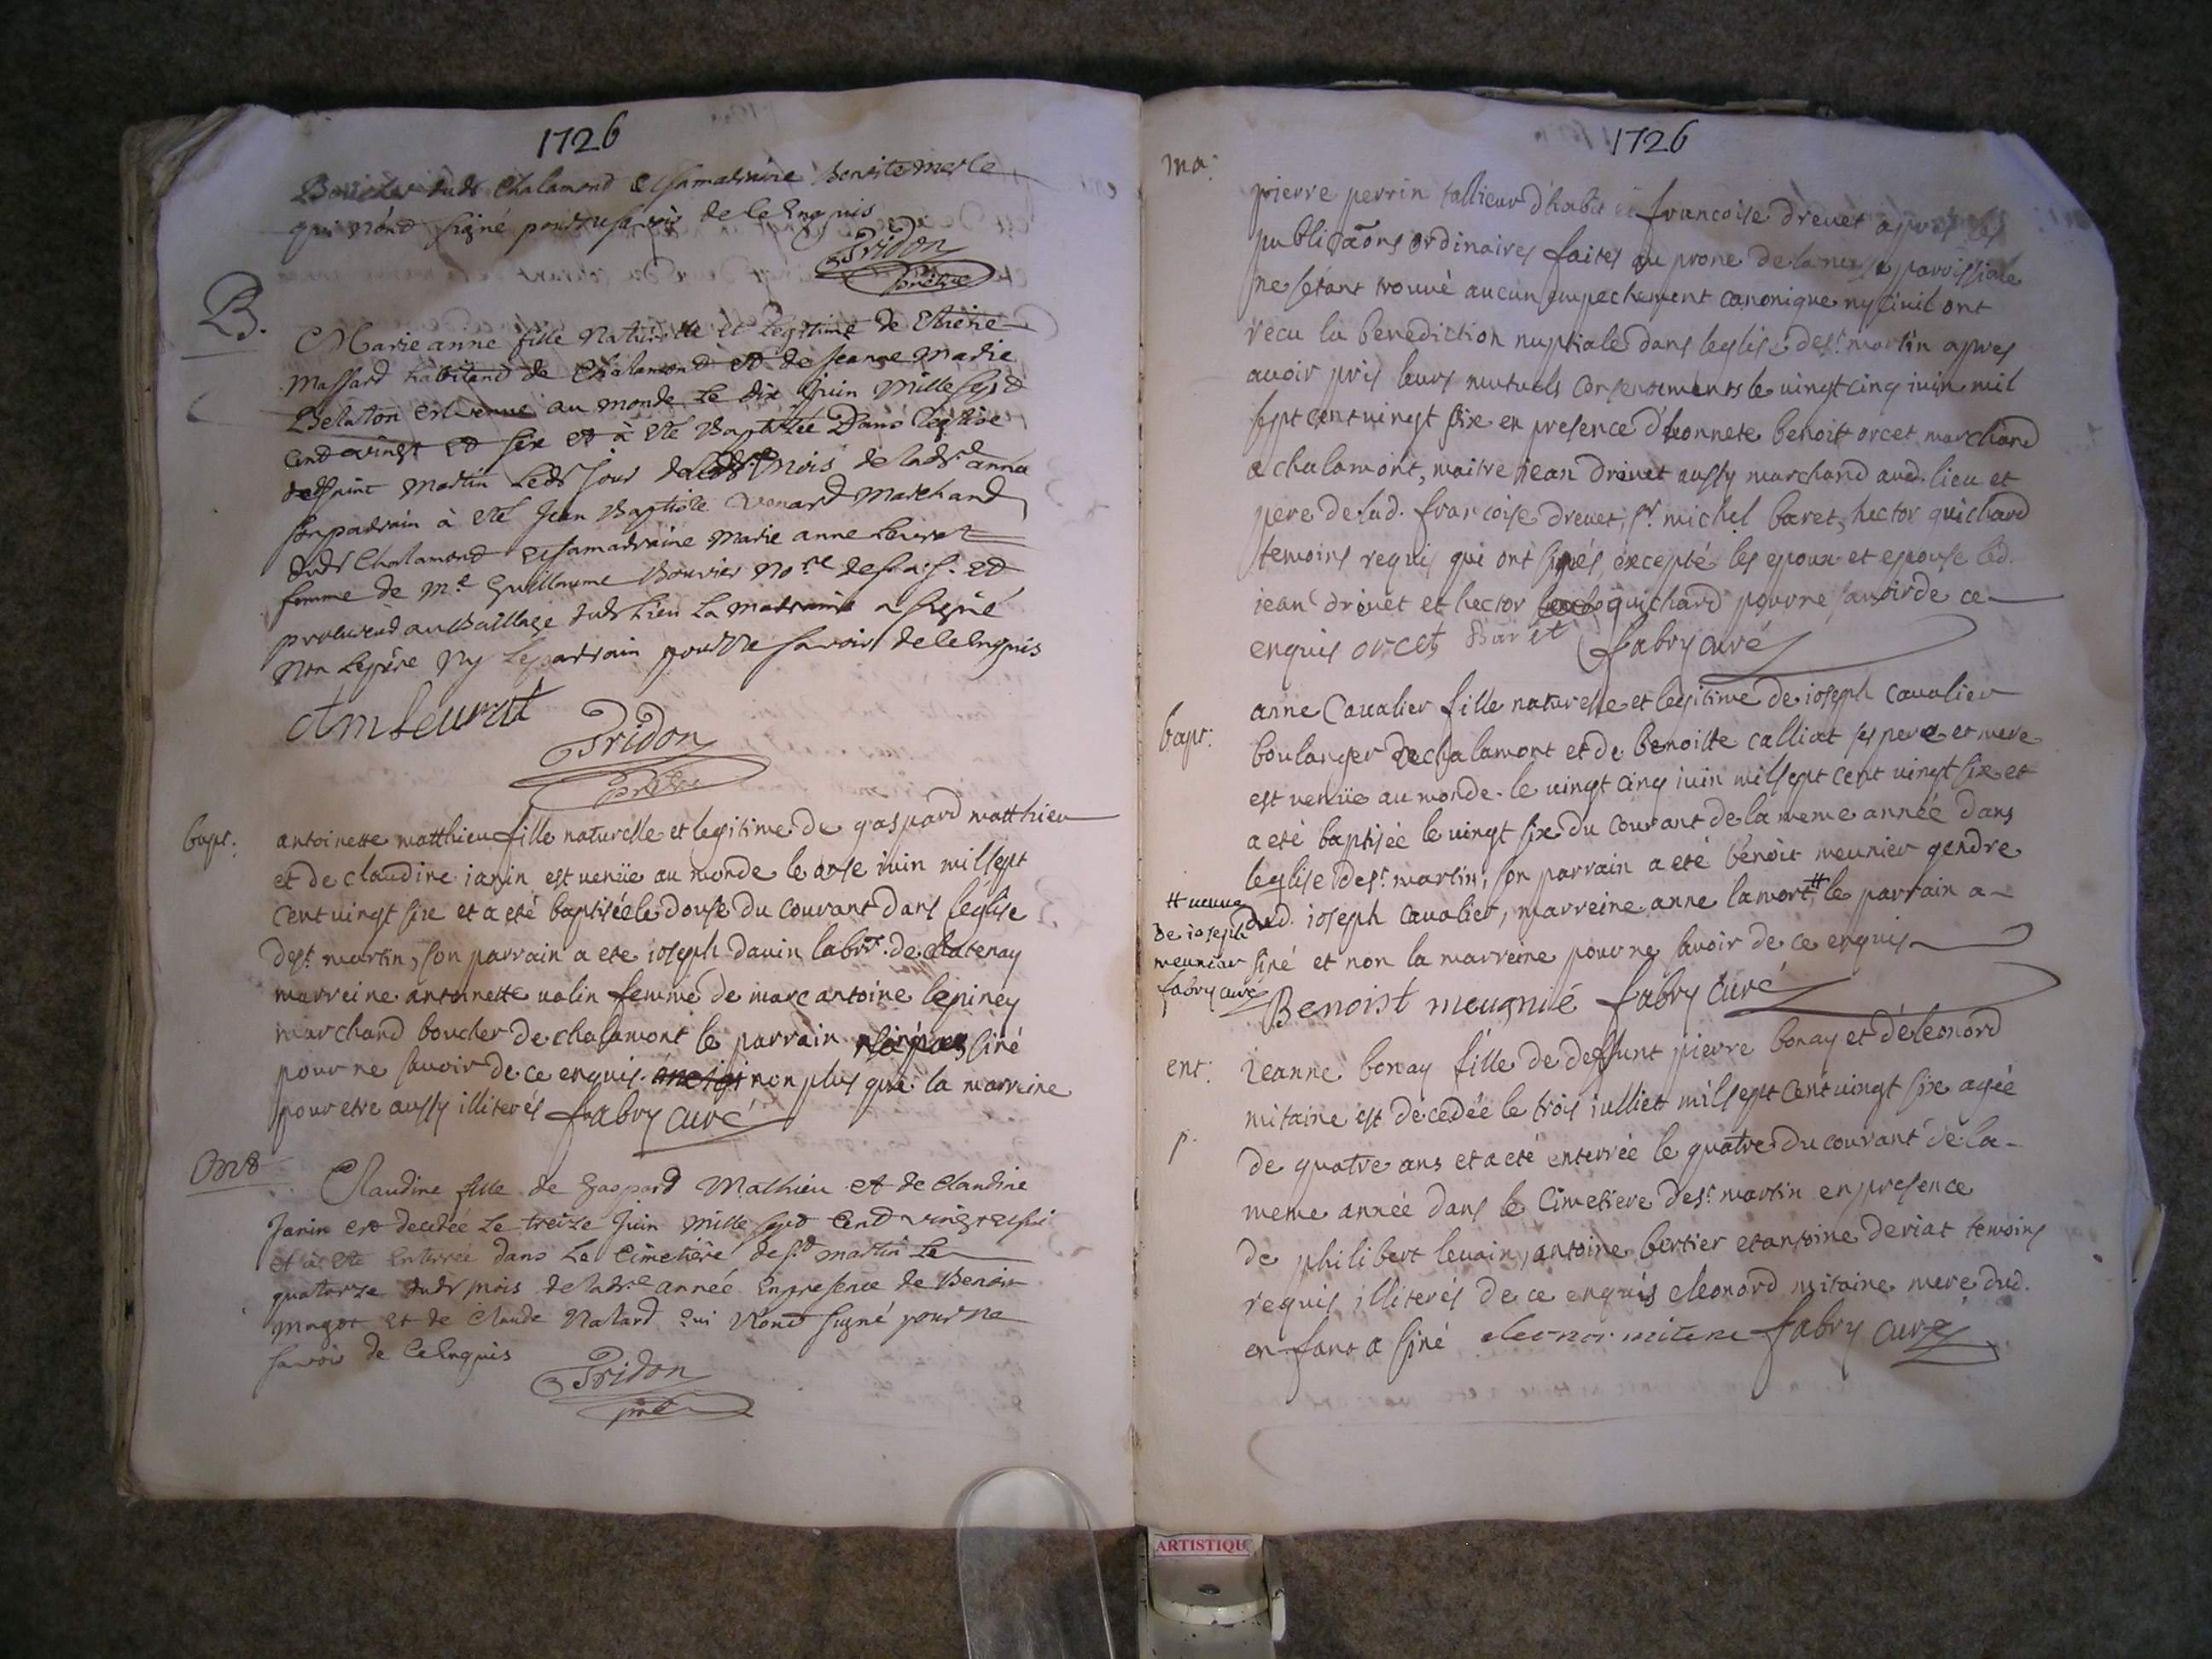 1726
Boucher dudt Chalamond Et samadraine Benoite merle
qui n'ont signé pour ne savoir de ce Enquis
Pridon
prêtre
B.
Marie anne fille Naturelle et Legitime de
Massard habitand de Chalamond et de Jeanne Marie
Belaton est venue au monde Le dix Juin Mille sept
cend vingt et six et à eté Baptizée Dans l'eglise
de saint Martin Ledt jour mois de ladt. année
son padrain à eté Jean Baptiste Venard Marchand
dudt Chalamond et samadraine Marie anne Leurat
femme de Me Guillaume Bouvier no.re
procureud au Baillage dudt Lieu La madraine a signé
non Lepère Ny Lepadrain pour Ne savoir de ce Enquis
Am Leurat
Pridon
prêtre
bapt. antoinette matthieu fille naturelle et legitime de gaspard matthieu
et de claudine janin est venüe au monde le onse iuin mil sept
cent vingt six et a eté baptisée le douse du courant dans leglise
de st. martin, son parrain a ete ioseph dauin labr. de chatenay
marreine antoinette valin femme de marc antoine lepiney
marchand boucher de chalamont le parrain siné
pour ne savoir de ce enquis non plus que la marreine
pour etre aussy illiterés fabry curé
Claudine fille de Gaspard Mathieu et de Claudine
Janin est decedée Le treize Juin Mille sept Cend vingt et six
et à eté Enterrée dans Le Cimetière de st martin Le
quatorze dudt mois de ladt.e année En presence de Benoit
Magot et de Claude Natard qui N'ond signé pour ne
savoir de Ce Enquis
Pridon
ptre
1726
ma. pierre perrin tallieur d'habit et francoise drevet apres les
publicãons ordinaires faites au prone de la messe paroissiale
ne s'etant trouvé aucun empechement canonique ny civil ont
recu la benediction nuptiale dans leglise de st. martin apres
avoir pris leurs mutuels consentements le vingt cinq iuin mil
sept cent vingt six en presence d'honnete benoitt orcet marchand
a chalamont, maitre jean drevet aussy marchand aud. lieu et
pere de lad. francoise drevet, sr. michel baret, hector guichard
temoins requis qui ont sinés excepté les epoux et espouse led.
iean drevet et hector guichard pour ne savoir de ce
enquis orcet Baret fabry curé
bapt. anne Cavalier fille naturelle et legitime de ioseph cavalier
boulanger de chalamont et de benoitte calliat ses pere et mere
est venüe au monde le vingt cinq iuin mil sept cent vingt six et
a eté baptisée le vingt six du courant de la meme année dans
leglise de st. martin, son parrain a eté benoit meunier gendre
dud. ioseph cavalier, marreine anne lamort # le parrain a
# veuve
de ioseph
meunier
fabry curé
siné et non la marreine pour ne savoir de ce enquis
Benoist meugnié fabry curé
ent. Jeanne bonay fille de deffunt pierre bonay et d'eleonord
mitaine est decedée le trois iulliet mil sept cent vingt six agée
p. de quatre ans et a eté enterrée le quatre du courant de la
meme année dans le Cimetiere de st. martin en presence
de philibert levain, antoine bertier et antoine deriat temoins
requis illiterés de ce enquis eleonord mitaine mere dud.
enfant a siné eleonor mitene fabry curé
ARTISTIQU